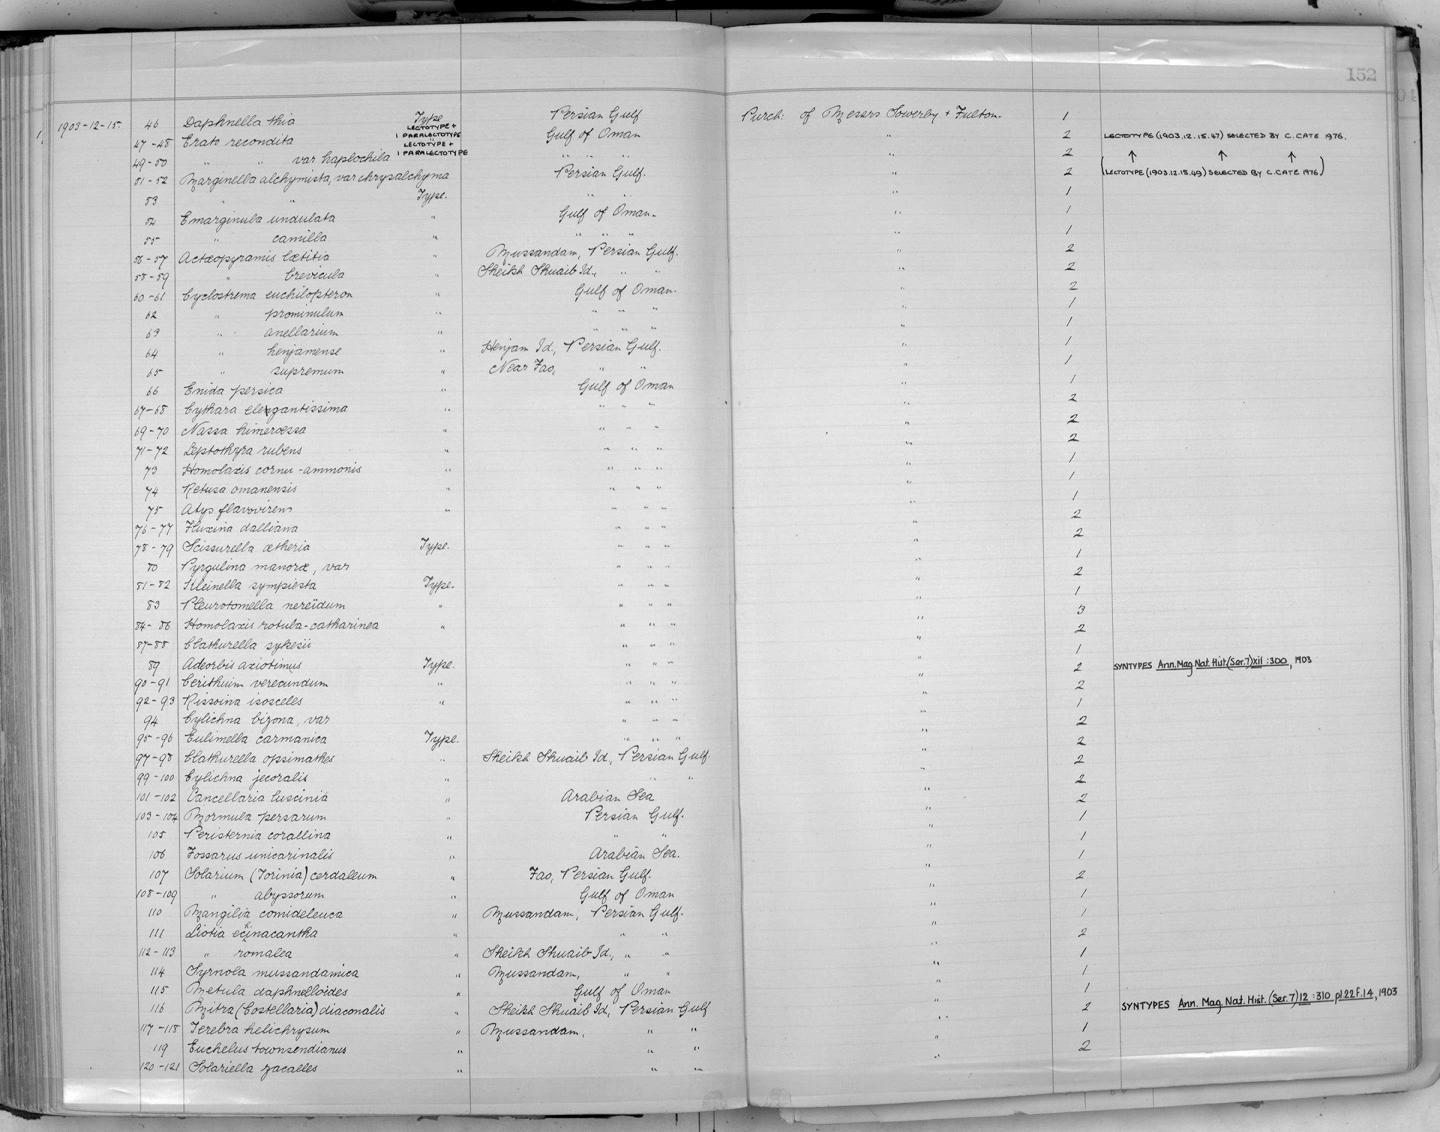 152
1903-12-15. 46 Daphnella thia Type Persian Gulf Purch: of Messrs Sowerby + Fulton. 1
47-48 Erato recondita LECTOTYPE + 1 PARALECTOTYPE Gulf of Oman " 2 LECTOTYPE (1903.12.15.47) SELECTED BY C. CATE 1976.
49-50 " " var haplochila LECTOTYPE + 1 PARALECTOTYPE " " " " 2 ↑ ↑ ↑
51-52 Marginella alchymista, var chrysalchyma Persian Gulf. " 2 (LECTOTYPE (1903.12.15.49) SELECTED BY C. CATE 1976)
53 " " Type. " " " 1
54 Emarginula undulata " Gulf of Oman. " 1
55 " camilla " " " " " 1
56-57 Actæopyramis lætitia " Mussandam, Persian Gulf. " 2
58-59 " brevicula " Sheikh Shuaib Id., " " " 2
60-61 Cyclostrema euchilopteron " Gulf of Oman. " 2
62 " prominulum " " " " " 1
63 " anellarium " " " " " 1
64 " henjamense " Henjam Id., Persian Gulf. " 1
65 " supremum " Near Fao, " " " 1
66 Enida persica " Gulf of Oman " 1
67-68 Cythara elegantissima " " " " " 2
69-70 Nassa himeroessa " " " " " 2
71-72 Leptothyra rubens " " " " " 2
73 Homolaxis cornu-ammonis " " " " " 1
74 Retusa omanensis " " " " " 1
75 Atys flavovirens " " " " " 1
76-77 Fluxina dalliana " " " " 2
78-79 Scissurella ætheria Type. " " " " 2
80 Pyrgulina manoræ, var " " " " 1
81-82 Kleinella sympiesta Type. " " " " 2
83 Pleurotomella nereïdum " " " " " 1
84-86 Homolaxis rotula-catharinea " " " " " 3
87-88 Clathurella sykesii " " " " 2
89 Adeorbis axiotimus Type. " " " " 1
90-91 Cerithium verecundum " " " " " 2 SYNTYPES Ann. Mag. Nat. Hist. (Ser. 7) xii : 300, 1903
92-93 Rissoina isosceles " " " " " 2
94 Cylichna bizona, var " " " " 1
95-96 Eulimella carmanica Type. " " " " 2
97-98 Clathurella opsimathes " Sheikh Shuaib Id., Persian Gulf. " 2
99-100 Cylichna jecoralis " " " " 2
101-102 Cancellaria luscinia " Arabian Sea " 2
103-104 Mormula persarum " Persian Gulf. " 2
105 Peristernia corallina " " " " 1
106 Fossarus unicarinalis " Arabian Sea. " 1
107 Solarium (Torinia) cerdaleum " Fao, Persian Gulf. " 1
108-109 " abyssorum " Gulf of Oman " 2
110 Mangilia comideleuca " Mussandam, Persian Gulf. " 1
111 Liotia echinacantha " " " " 1
112-113 " romalea " Sheikh Shuaib Id., " " " 2
114 Syrnola mussandamica " Mussandam, " " " 1
115 Metula daphnelloides " Gulf of Oman " 1
116 Mitra (Costellaria) diaconalis " Sheikh Shuaib Id., Persian Gulf " 1
117-118 Terebra helichrysum " Mussandam, " " " 2 SYNTYPES Ann. Mag. Nat. Hist. (Ser. 7) 12 : 310 pl 22 F. 14, 1903
119 Euchelus townsendianus " " " " 1
120-121 Solariella zacalles " " " " 2